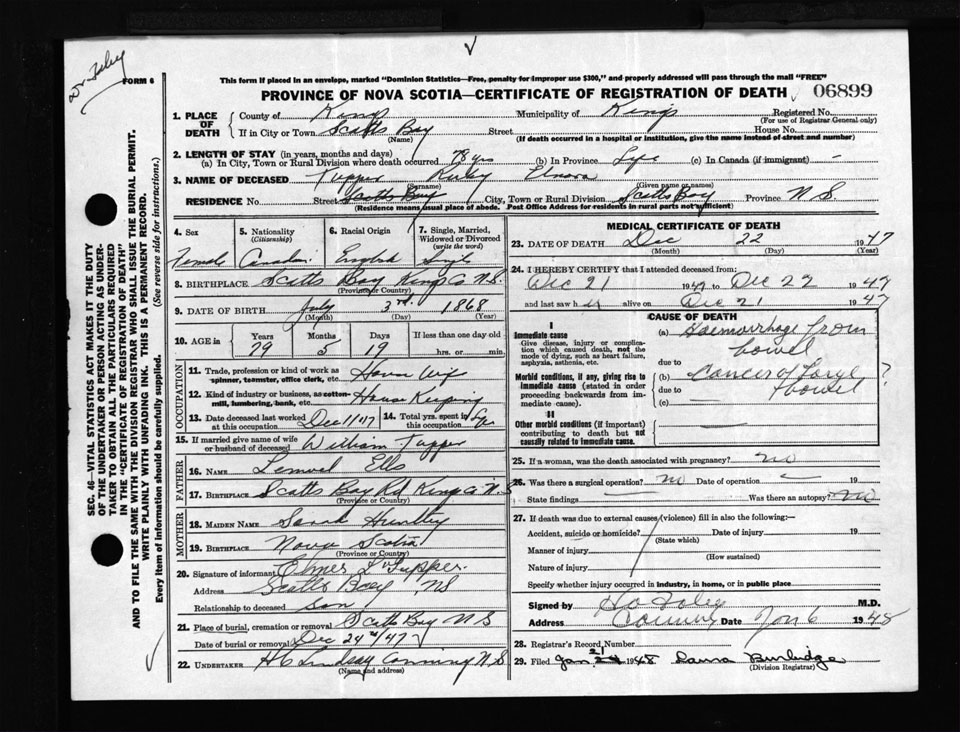 FORM 6
This form if placed in an envelope, marked "Dominion Statistics—Free, penalty for improper use $300," and properly addressed will pass through the mail "FREE"
PROVINCE OF NOVA SCOTIA—CERTIFICATE OF REGISTRATION OF DEATH 06899
SEC. 46—VITAL STATISTICS ACT MAKES IT THE DUTY
OF THE UNDERTAKER OR PERSON ACTING AS UNDER-
TAKER TO OBTAIN ALL THE PARTICULARS REQUIRED
IN THE "CERTIFICATE OF REGISTRATION OF DEATH"
AND TO FILE THE SAME WITH THE DIVISION REGISTRAR WHO SHALL ISSUE THE BURIAL PERMIT.
WRITE PLAINLY WITH UNFADING INK. THIS IS A PERMANENT RECORD.
Every item of information should be carefully supplied. (See reverse side for instructions.)
1. PLACE OF DEATH
County of Kings Municipality of Kings Registered No.
(For use of Registrar General only)
If in City or Town Scotts Bay Street House No.
(Name) (If death occurred in a hospital or institution, give the name instead of street and number)
2. LENGTH OF STAY (in years, months and days)
(a) In City, Town or Rural Division where death occurred 78 yrs (b) In Province Life (c) In Canada (if immigrant) —
3. NAME OF DECEASED Tupper Ruby Elnora
(Surname) (Given name or names)
RESIDENCE No. Street Scotts Bay City, Town or Rural Division Scotts Bay Province N S
(Residence means usual place of abode. Post Office Address for residents in rural parts not sufficient)
4. Sex 5. Nationality (Citizenship) 6. Racial Origin 7. Single, Married, Widowed or Divorced (write the word)
Female Canadian English Single
8. BIRTHPLACE Scotts Bay Kings Co N.S.
(Province or Country)
9. DATE OF BIRTH July 3rd. 1868
(Month) (Day) (Year)
10. AGE in Years Months Days If less than one day old
79 5 19 hrs. or min.
OCCUPATION
11. Trade, profession or kind of work as spinner, teamster, office clerk, etc. House Wife
12. Kind of industry or business, as cotton-mill, lumbering, bank, etc. House Keeping
13. Date deceased last worked at this occupation Dec 11/47 14. Total yrs. spent in this occupation
15. If married give name of wife or husband of deceased William Tupper
FATHER
16. NAME Lemuel Ells
17. BIRTHPLACE Scotts Bay Rd Kings Co N.S
(Province or Country)
MOTHER
18. MAIDEN NAME Sarah Huntley
19. BIRTHPLACE Nova Scotia
(Province or Country)
20. Signature of informant L Tupper.
Address Scotts Bay NS
Relationship to deceased son
21. Place of burial, cremation or removal Scotts Bay N S
Date of burial or removal Dec 24/47
22. UNDERTAKER H C Lindsay Canning N.S.
(Name and address)
MEDICAL CERTIFICATE OF DEATH
23. DATE OF DEATH Dec 22 1947
(Month) (Day)
24. I HEREBY CERTIFY that I attended deceased from:
Dec 21 1947 to Dec 22 1947
and last saw her alive on Dec 21 1947
CAUSE OF DEATH
I
Immediate cause
Give disease, injury or complication which caused death, not the mode of dying, such as heart failure, asphyxia, asthenia, etc.
(a) Haemorrhage from bowel
due to
Morbid conditions, if any, giving rise to immediate cause (stated in order proceeding backwards from immediate cause).
(b) Cancer of large bowel ?
due to
(c) —
II
Other morbid conditions (if important) contributing to death but not causally related to immediate cause.
25. If a woman, was the death associated with pregnancy? no
26. Was there a surgical operation? no Date of operation —
State findings Was there an autopsy? no
27. If death was due to external causes (violence) fill in also the following:—
Accident, suicide or homicide? Date of injury 19
(State which)
Manner of injury
(How sustained)
Nature of injury
Specify whether injury occurred in industry, in home, or in public place
Signed by M.D.
Address Canning Date Jan 6 1948
28. Registrar's Record Number
29. Filed Jan 21 1948 Laura Burbidge
(Division Registrar)